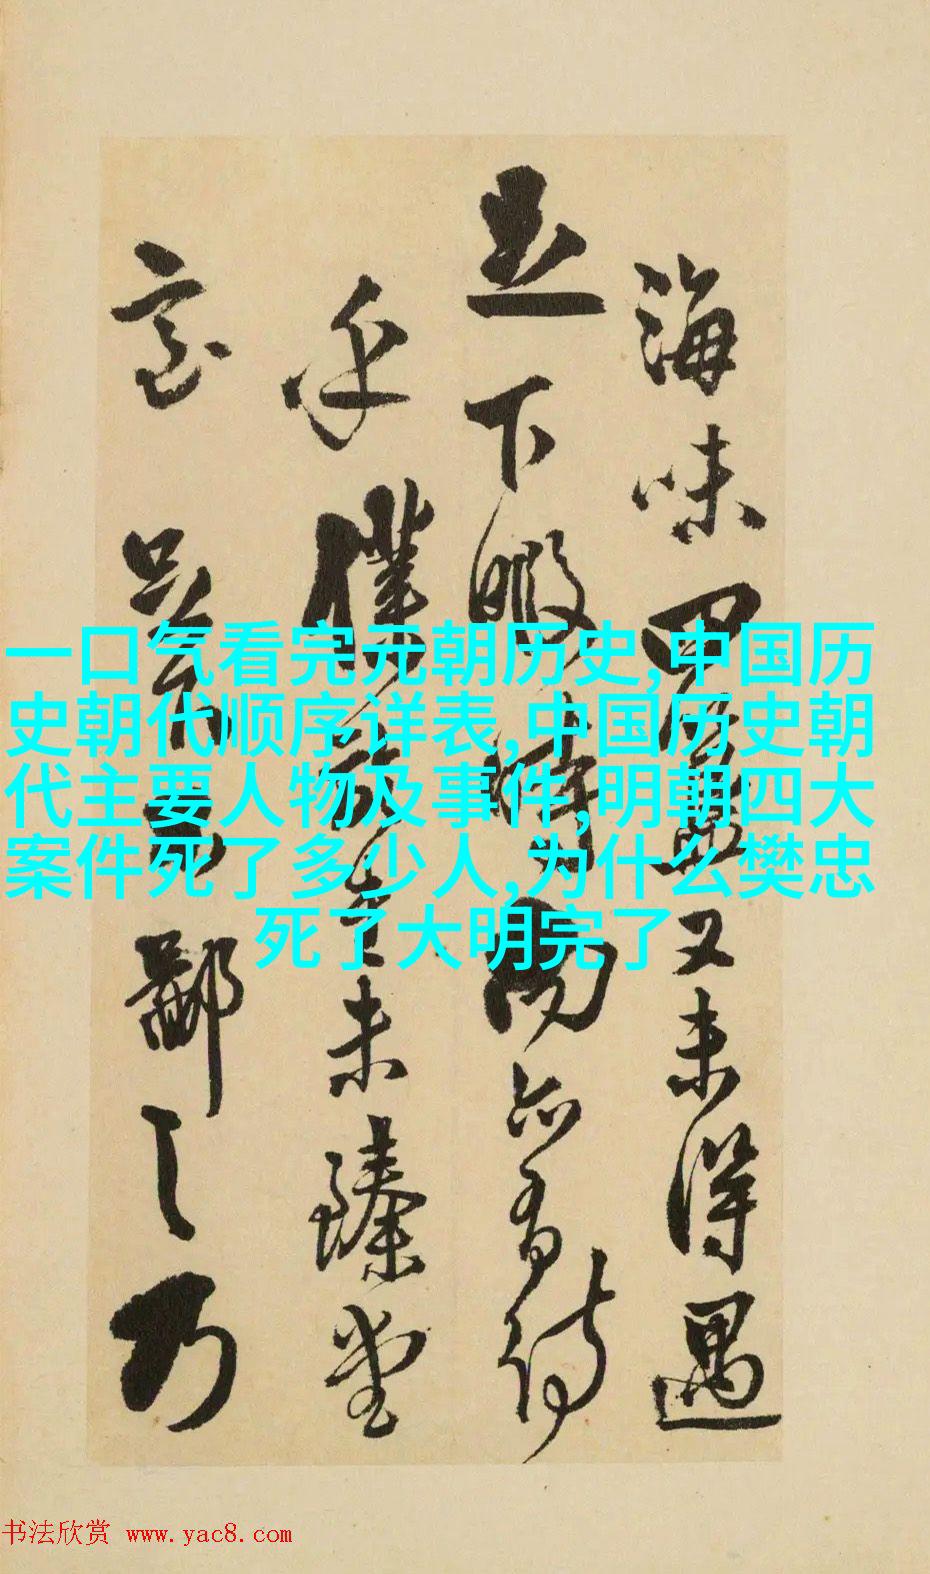 海味又未得遇
足下暇時
乎僕未臻堂
室鄙之乃
一口气看完元朝历史,中国历
史朝代顺序详表,中国历史朝
代主要人物及事件,明朝四大
案件死了多少人,为什么樊忠
死了大明完了
书法欣赏 www.yac8.com